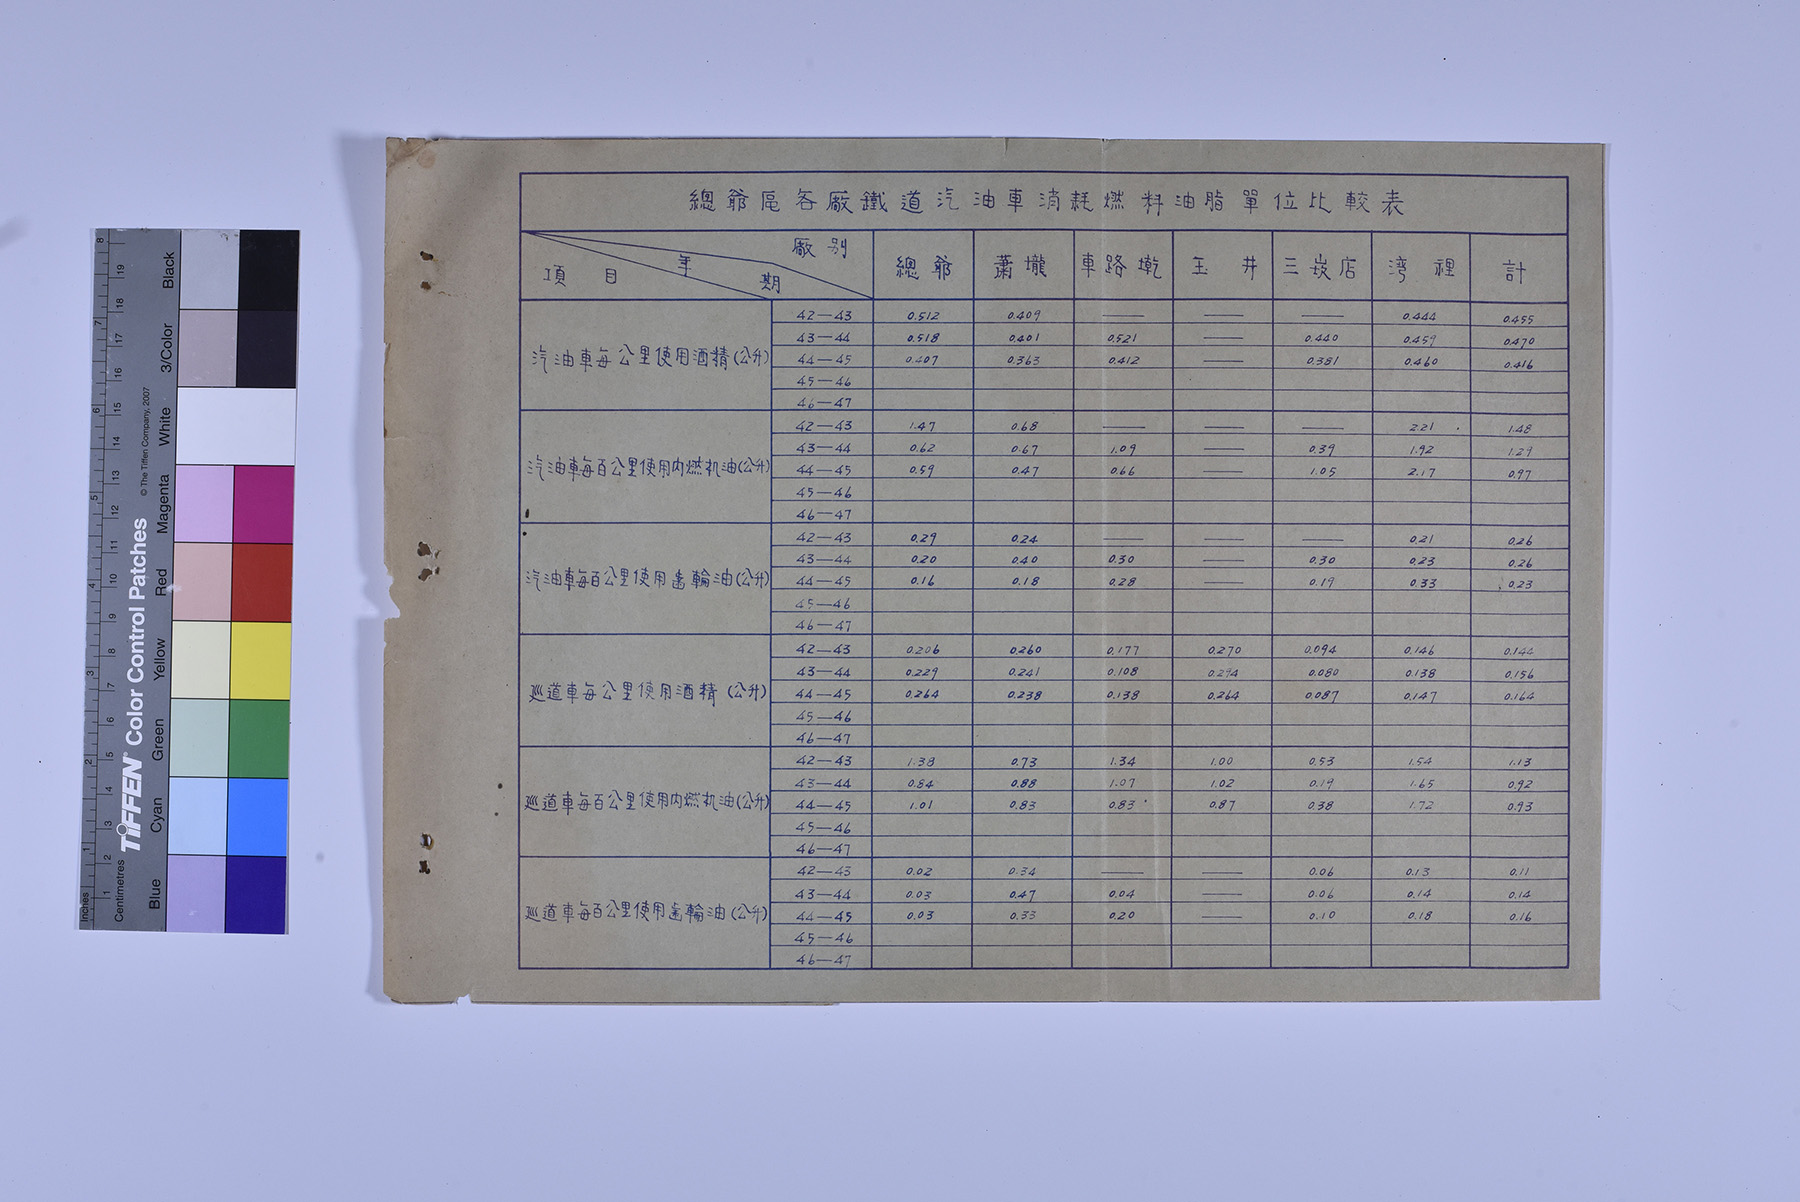 總爺區各廠鐵道汽油車消耗燃料油脂單位比較表
項目 年期 廠別 總爺 蕭壠 車路墘 玉井 三崁店 湾裡 計
汽油車每公里使用酒精(公升)
42—43 0.512 0.409 — — — 0.444 0.455
43—44 0.518 0.401 0.521 — 0.440 0.459 0.470
44—45 0.407 0.363 0.412 — 0.381 0.460 0.416
45—46
46—47
汽油車每百公里使用内燃机油(公升)
42—43 1.47 0.68 — — — 2.21 1.48
43—44 0.62 0.67 1.09 — 0.39 1.92 1.29
44—45 0.59 0.47 0.66 — 1.05 2.17 0.97
45—46
46—47
汽油車每百公里使用齒輪油(公升)
42—43 0.29 0.24 — — — 0.21 0.26
43—44 0.20 0.40 0.30 — 0.30 0.23 0.26
44—45 0.16 0.18 0.28 — 0.19 0.33 0.23
45—46
46—47
巡道車每公里使用酒精(公升)
42—43 0.206 0.260 0.177 0.270 0.094 0.146 0.144
43—44 0.229 0.241 0.108 0.294 0.080 0.138 0.156
44—45 0.264 0.238 0.138 0.264 0.087 0.147 0.164
45—46
46—47
巡道車每百公里使用内燃机油(公升)
42—43 1.38 0.73 1.34 1.00 0.53 1.54 1.13
43—44 0.84 0.88 1.07 1.02 0.19 1.65 0.92
44—45 1.01 0.83 0.83 0.87 0.38 1.72 0.93
45—46
46—47
巡道車每百公里使用齒輪油(公升)
42—43 0.02 0.34 — — 0.06 0.13 0.11
43—44 0.03 0.47 0.04 — 0.06 0.14 0.14
44—45 0.03 0.33 0.20 — 0.10 0.18 0.16
45—46
46—47
TIFFEN® Color Control Patches
© The Tiffen Company, 2007
Inches
1 2 3 4 5 6 7 8
Centimetres
1 2 3 4 5 6 7 8 9 10 11 12 13 14 15 16 17 18 19
Blue Cyan Green Yellow Red Magenta White 3/Color Black